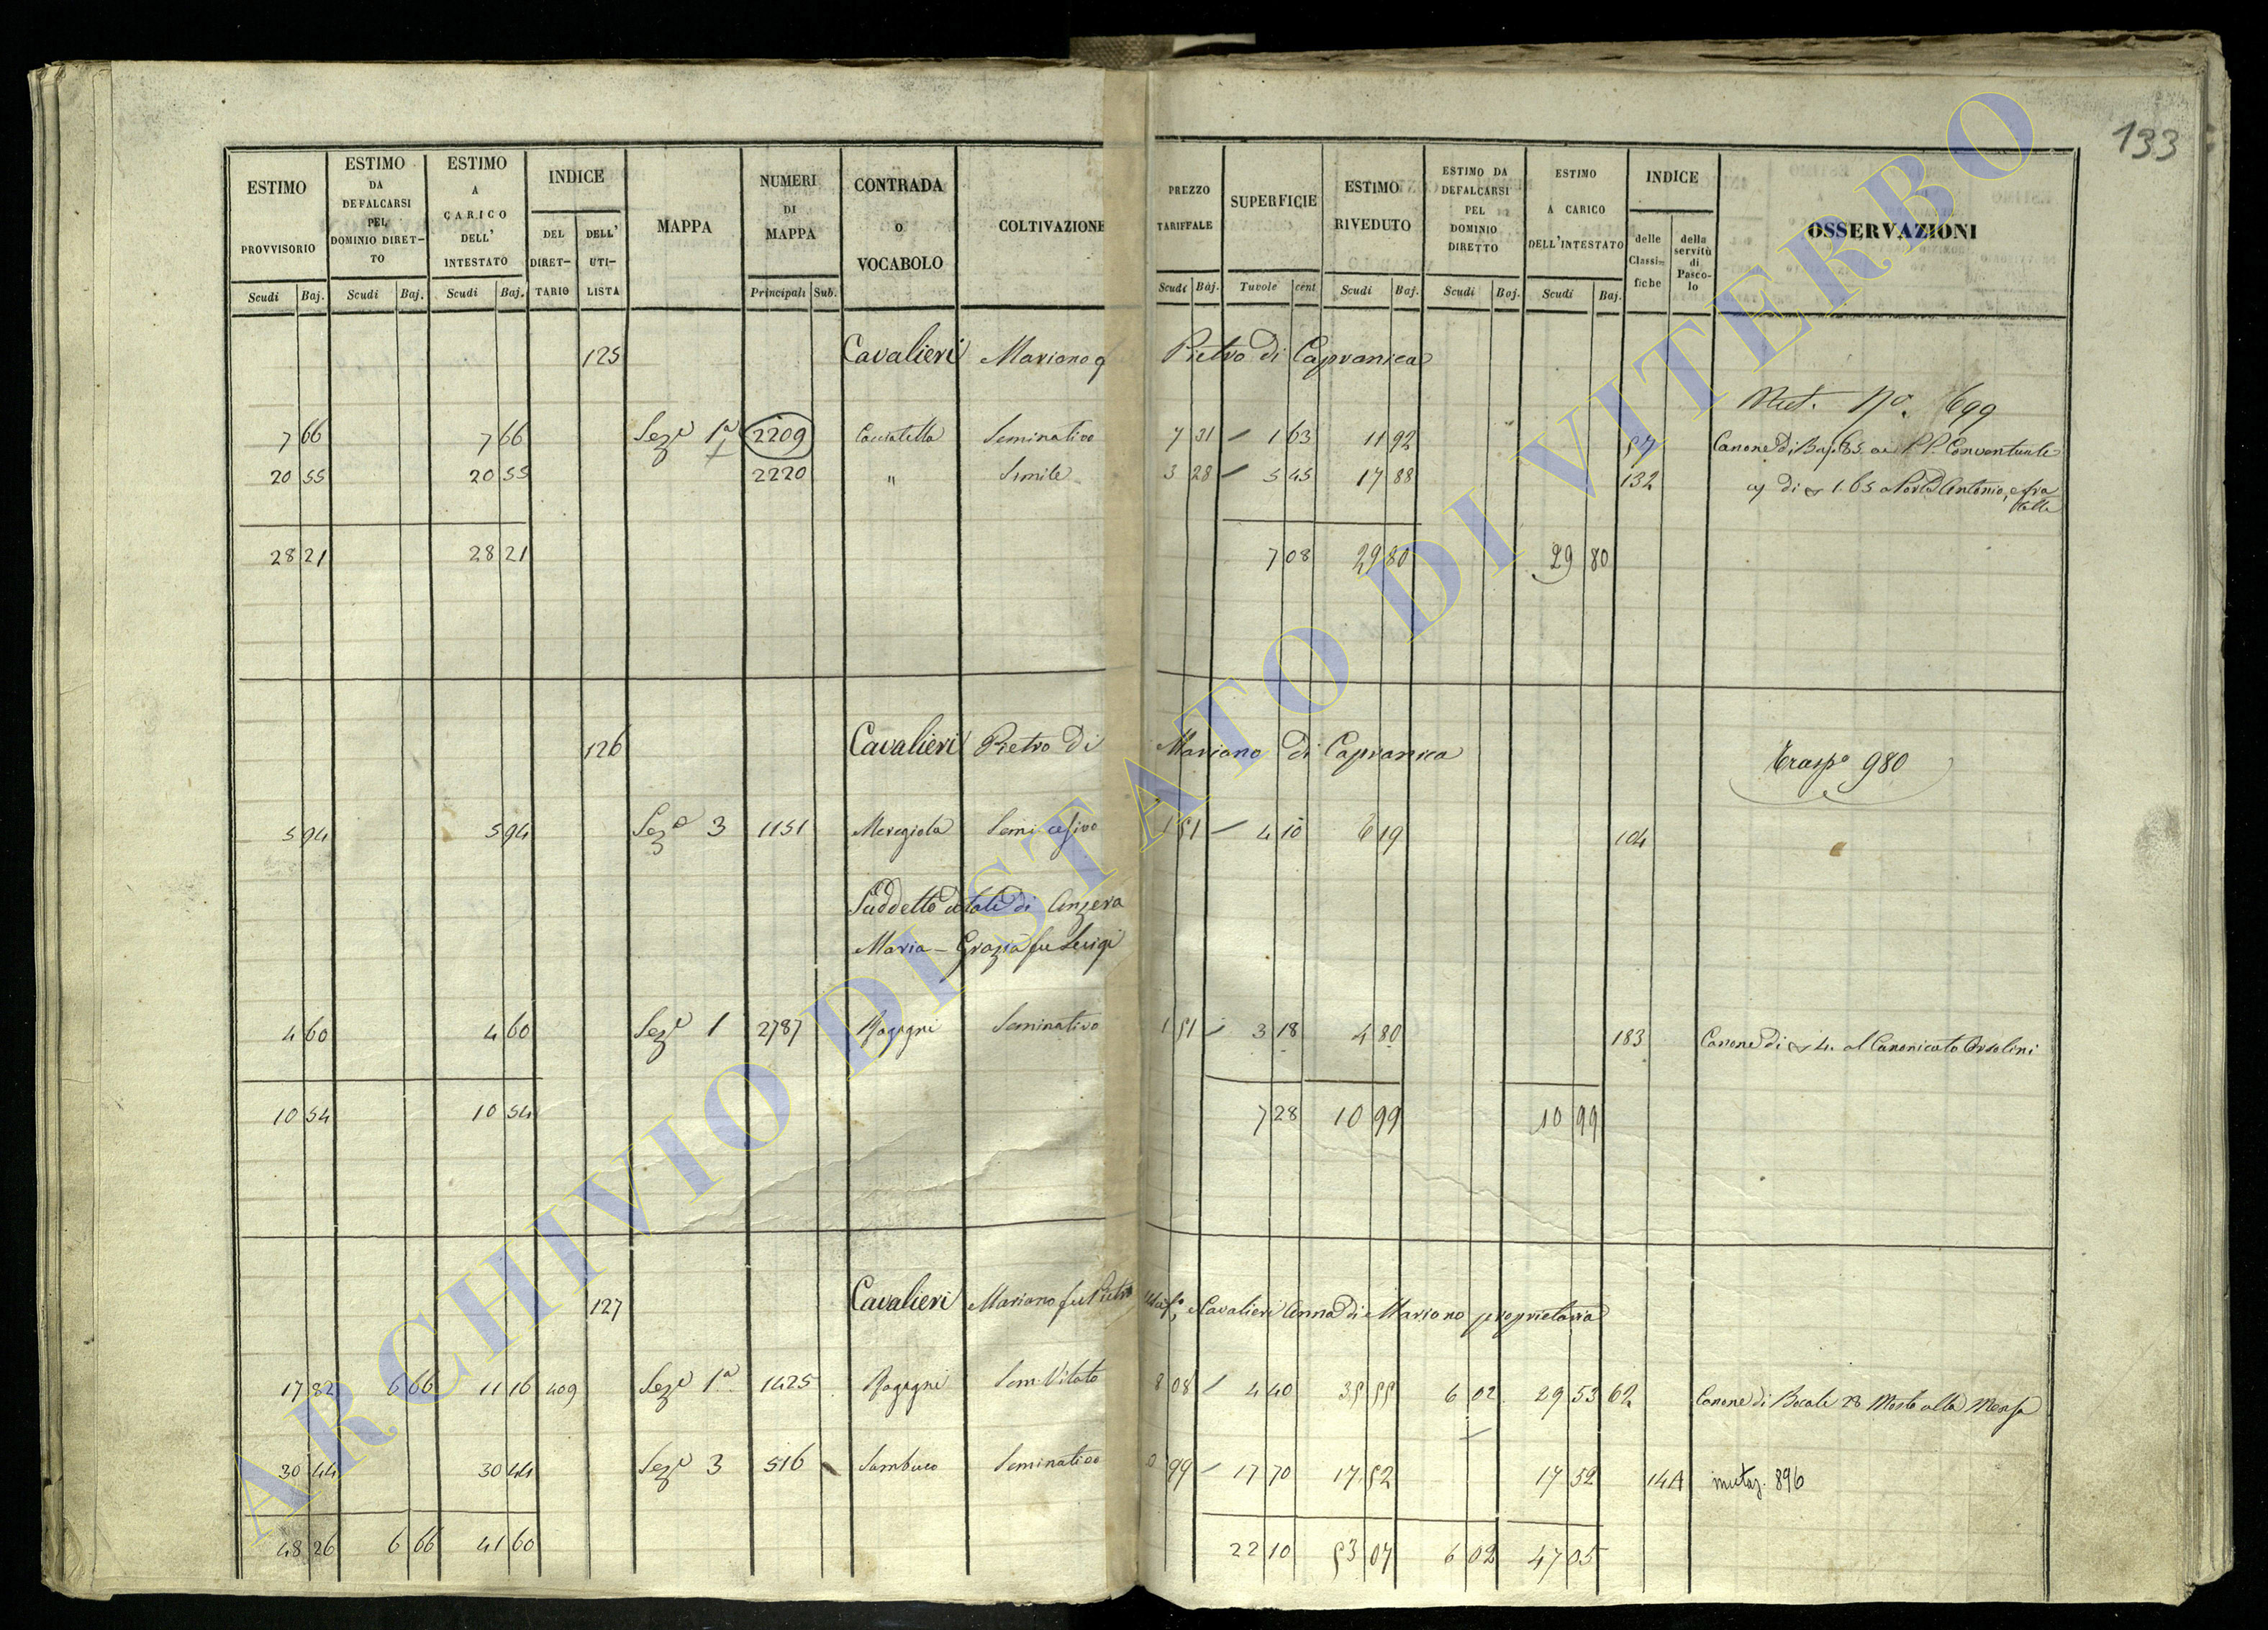 133
ESTIMO PROVVISORIO Scudi Baj.
ESTIMO DA DEFALCARSI PEL DOMINIO DIRET-TO Scudi Baj.
ESTIMO A CARICO DELL' INTESTATO Scudi Baj.
INDICE DEL DIRET-TARIO DELL' UTI-LISTA
MAPPA
NUMERI DI MAPPA Principali Sub.
CONTRADA O VOCABOLO
COLTIVAZIONE
PREZZO TARIFFALE Scudi Baj.
SUPERFICIE Tavole cent
ESTIMO RIVEDUTO Scudi Baj.
ESTIMO DA DEFALCARSI PEL DOMINIO DIRETTO Scudi Baj.
ESTIMO A CARICO DELL'INTESTATO Scudi Baj.
INDICE delle Classi=fiche della servitù di Pasco-lo
OSSERVAZIONI
125 Cavalieri Mariano q Pietro di Capranica
Mut. No. 699
7 66 7 66 Seze 1a 2209 Seminativo 7 31 1 63 11 92 57 Canone di Baj. 85 ai PP. Conventuali
20 55 20 55 2220 " Simile 3 28 5 45 17 88 132 di 1.65 Antonio, e fra
telli
28 21 28 21 7 08 29 80 29 80
126 Cavalieri Pietro di Mariano di Capranica
Traspo 980
5 94 5 94 Seze 3 1151 Meregiola Semi cesivo 1 51 4 10 6 19 104
Suddetto dotali di Anzera
Maria-Grazia fu Luigi
4 60 4 60 Seze 1 2787 Ragagni Seminativo 1 51 3 18 4 80 183 Canone di 4. al Canonicato Orsolini
10 54 10 54 7 28 10 99 10 99
127 Cavalieri Mariano fu Pietro Usufo, Cavalieri Anna di Mariano proprietaria
17 82 6 66 11 16 409 Seze 1a 1425 Ragagni Sem. Vitato 8 08 4 40 35 55 6 02 29 53 62 Canone di Bocali 28 Mosto alla Mensa
30 44 30 44 Seze 3 516 Sambuco Seminativo 0 99 17 70 17.52 17 52 14A mutaz. 896
48 26 6 66 41 60 22 10 53 07 6 02 47 05
ARCHIVIO DI STATO DI VITERBO